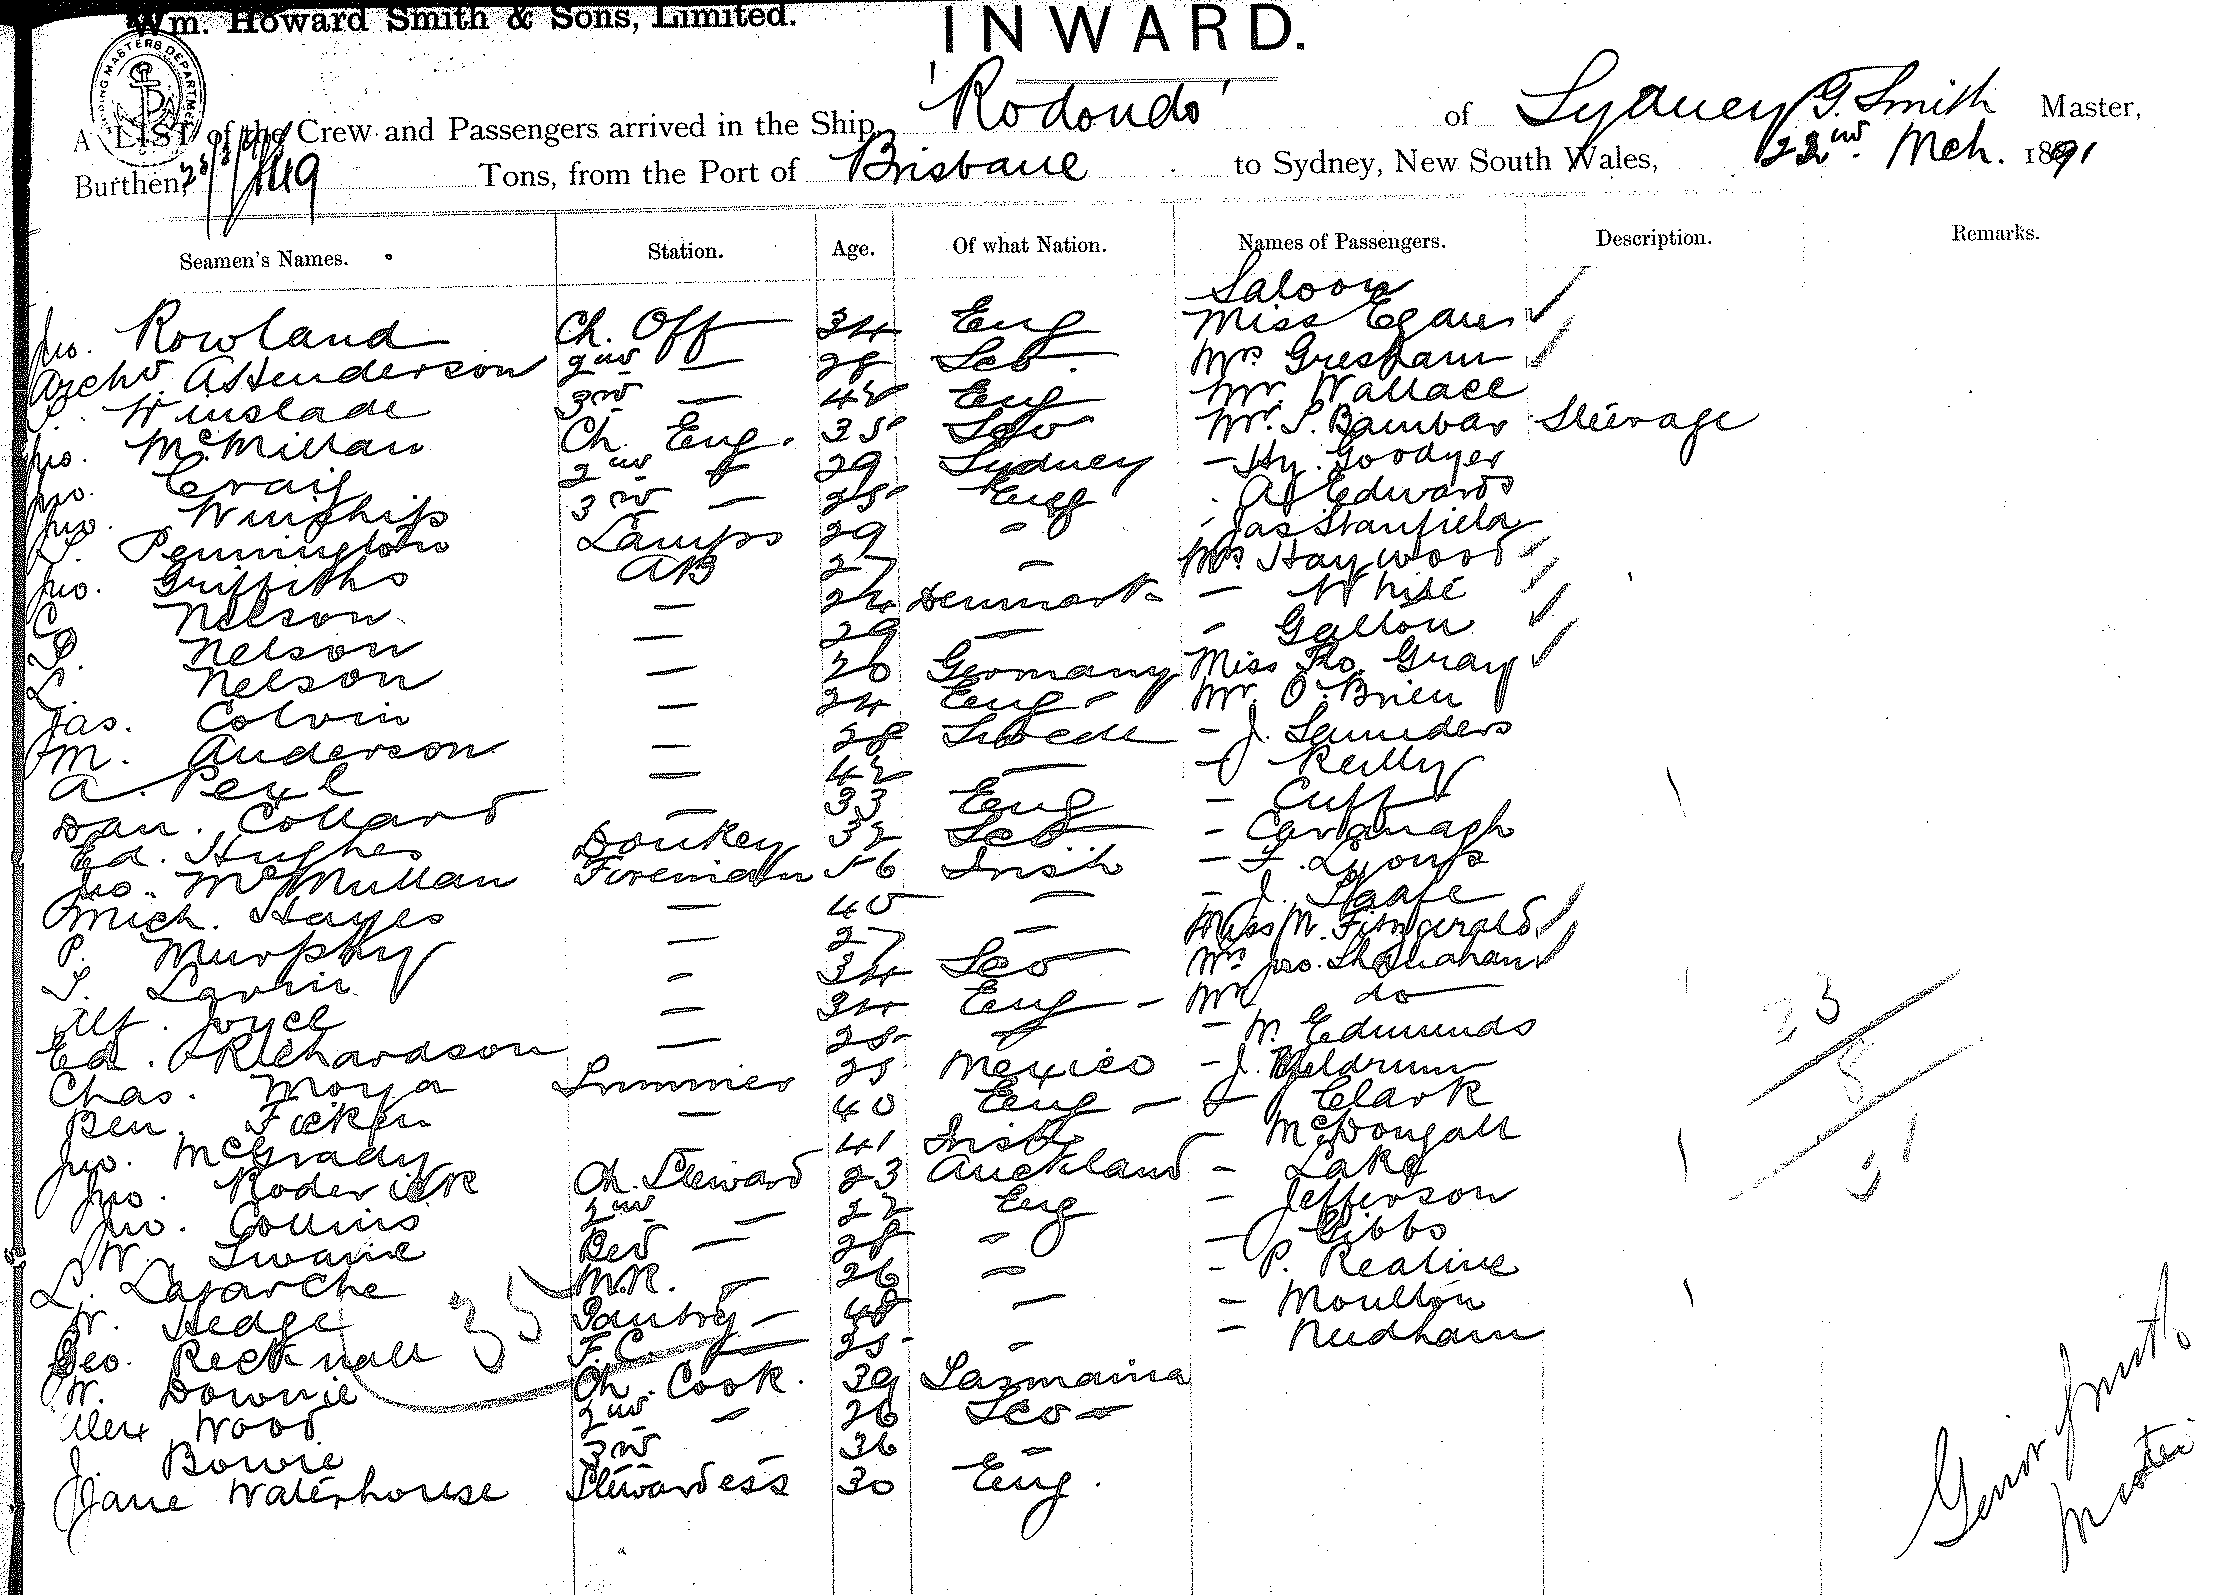 Wm. Howard Smith & Sons, Limited.
INWARD.
A LIST of the Crew and Passengers arrived in the Ship 'Rodondo' of Sydney G. Smith Master,
Burthen, 1119 Tons, from the Port of Brisbane to Sydney, New South Wales, 22nd Mch. 1891
Seamen's Names. Station. Age. Of what Nation. Names of Passengers. Description. Remarks.
Saloon
Jno. Rowland Ch. Off 34 Eng Miss Egan
Archd A Henderson 2nd — 28 Sco. Mrs Gresham
Winslade 3rd — 42 Eng Mr Wallace
Jno. McMillan Ch. Eng. 35 Sco Mr. S. Bambar Steerage
Jno. Craig 2nd 29 Sydney — Hy. Goodyer
Jno. Winship 3rd — 25 Eng A Edwards
Pennington Lamps 29 - Jas Stanfield
Jno. Griffiths AB 27 — Mrs Haywood
C Nelson — 24 Denmark - — White
Nelson — 29 — - Gallon
L. Nelson — 26 Germany Miss Ro. Gray
Jas. Colvin — 24 Eng - Mr. O'Brien
M. Anderson — 28 Swede - J. Saunders
A. — 42 — - Reilly
Dan. Collard — 33 Eng - Cuff
Ed. Hughes Donkey 32 Sco - Cavanagh
Jno. McMullan Fireman 56 Irish - F. Lyons
Mich. Hayes — 40 — - J.
P. Murphy — 27 — Miss M. Fitzgerald
Lavin - 34 Sco Mrs Jno. Shanahan
Alf. Joyce — 34 Eng - Mr do
Ed. Richardson — 25 - W. Edmunds
Chas. Moya Trimmer 25 Mexico - J. Meldrum
Ben. Ficken — 40 Eng - Clark
Jno. McGrady — 41 Irish - McDougall
Jno. Roderick Ch. Steward 23 Auckland - Lake
Jno. Collins 2nd — 22 Eng - Jefferson
W. Swaine Bed — 28 - - Gibbs
L. Lagarche M.R. - 26 — - P.
W. Hedge Pantry - 48 — - Moulton
Geo. Recknall F.C. 25 - - Needham
W. Downie Ch. Cook. 39 Tasmania
Alex Wood 2nd - 26 Sco -
J. Bowie 3rd - 36 -
Jane Waterhouse Stewardess 30 Eng.
35
23
8
31
Smith
Master